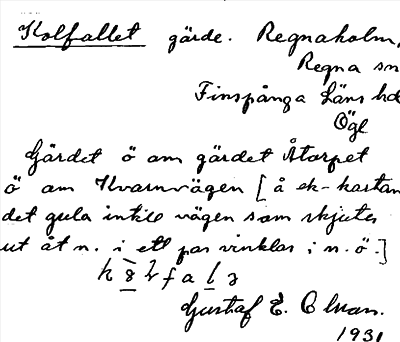 Kolfallet gärde. Regnaholm,
Regna sn
Finspånga Läns hd
Ögl
Gärdet ö om gärdet Åtorpet
ö om Kvarnvägen [å ek-kartan
det gula intill vägen som skjuter
ut åt n. i ett par vinklar i n.ö.]
Gustaf E. Olson.
1931